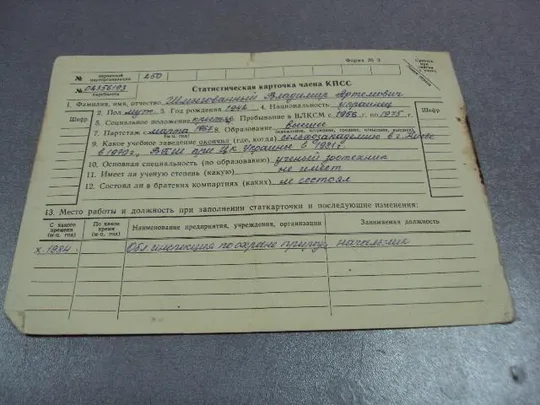 Форма № 3
№ 250
№ 04356193
Статистическая карточка члена КПСС
1. Фамилия, имя, отчество Владимир Артемович
Шифр
2. Пол муж. 3. Год рождения 1942 4. Национальность украинец
Шифр
5. Социальное положение 6. Пребывание в ВЛКСМ с 1956 г. по 1975 г.
7. Партстаж с марта 8. Образование высшее
9. Какое учебное заведение окончил (где, когда) сельхозакадемию в г. Киев
в 1970г., при ЦК Украины в 1981г.
10. Основная специальность (по образованию) ученый
11. Имеет ли ученую степень (какую) не имеет
12. Состоял ли в братских компартиях (каких) не состоял
13. Место работы и должность при заполнении статкарточки и последующие изменения:
С какого времени (м-ц, год)
По какое время (м-ц, год)
Наименование предприятия, учреждения, организации
Занимаемая должность
X 1984г.
Облинспекция по охране природы
начальник